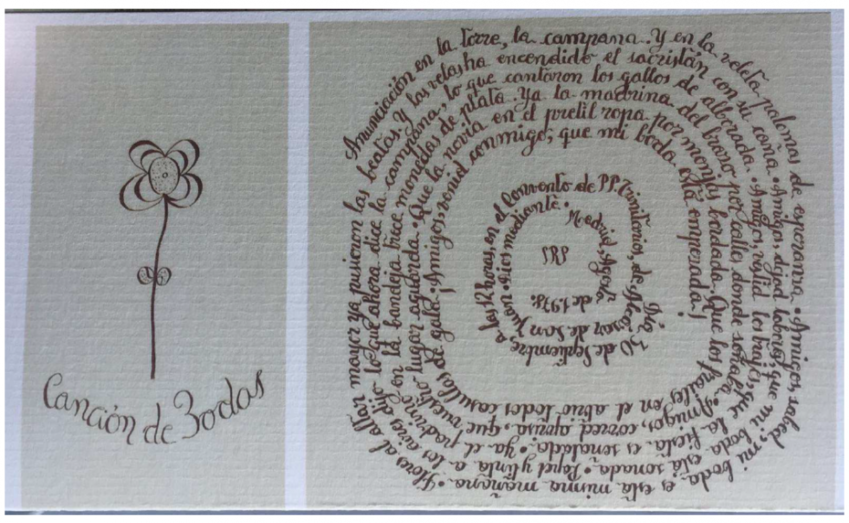 Canción de Bodas
Anunciación en la torre, la campana. Y en la veleta palomas de esperanza. Amigos sabed, mi boda es esta misma mañana. Flores al altar
mayor ya pusieron las beatas. Y las velas ha encendido el sacristán con su caña. Amigos, dejad labores, que mi boda está sonada. Papel y tinta a los aires dijo
lo que ahora dice la campana, lo que cantaron los gallos de alborada. Amigos, vestid los trajes, que la fiesta es señalada. Ya el padrino
en la bandeja trece monedas de plata. Ya la madrina del brazo por calles donde señalan. Amigos, corred aprisa, que nuestro
lugar aguarda. Que la novia en el pretil ropa por monjas bordada. Que los frailes en el atrio todos casullas
de gala. Amigos, venid conmigo, que mi boda está empezada!
Día 30 de Septiembre, a las 12 horas, en el Convento de P.P. Trinitarios, de Alcázar de San Juan. Dios mediante.
Madrid, Agosto de 1978.